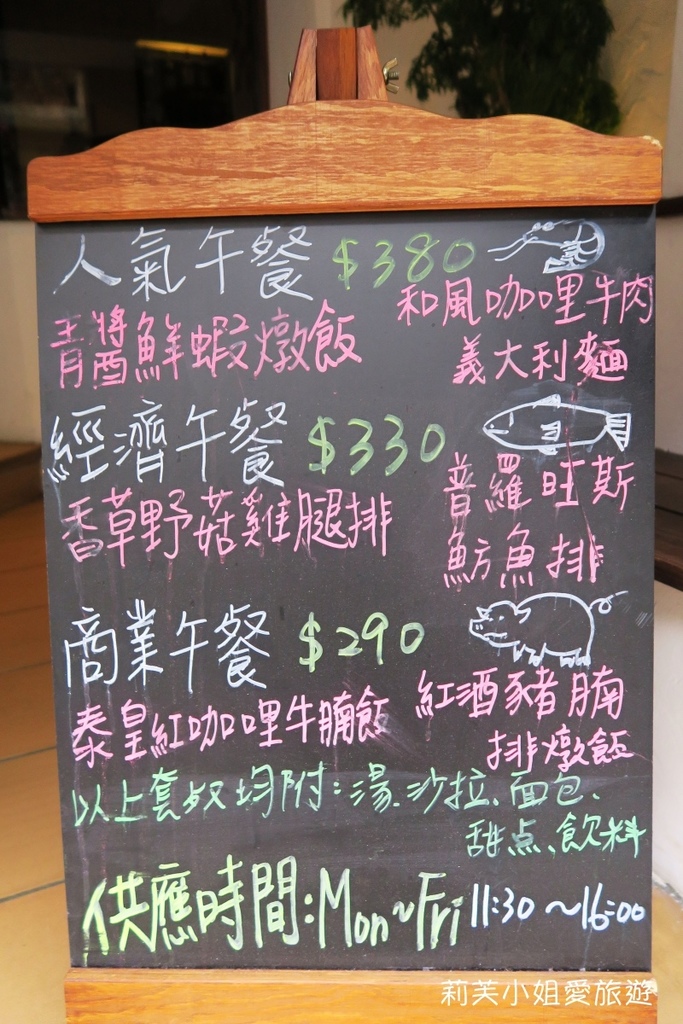 人氣午餐 $380
和風咖哩牛肉
義大利麵
青醬鮮蝦燉飯
經濟午餐 $330
普羅旺斯
魴魚排
香草野菇雞腿排
商業午餐 $290
紅酒豬腩
排燉飯
泰皇紅咖哩牛腩飯
以上套餐均附:湯、沙拉、面包、
甜点、飲料
供應時間:Mon~Fri 11:30~16:00
莉芙小姐愛旅遊